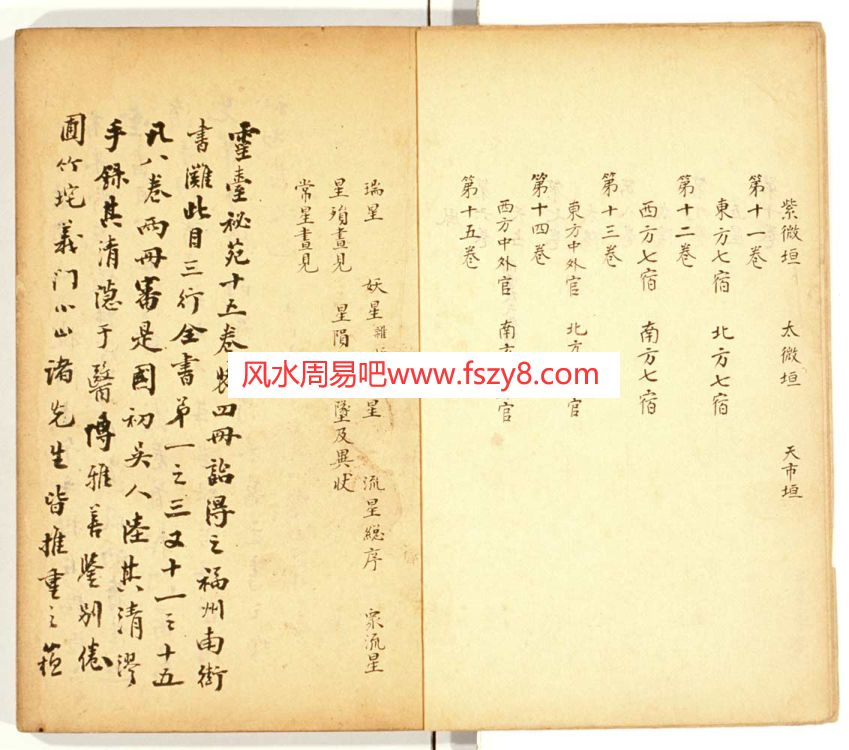 紫微垣 太微垣 天市垣
第十一卷
東方七宿 北方七宿
第十二卷
西方七宿 南方七宿
第十三卷
東方中外官 北方 官
第十四卷
西方中外官 南方 官
第十五卷
瑞星 妖星 雜 星 流星緫序 衆流星
星殞晝見 星隕 墜及異狀
常星晝見
靈臺祕苑十五卷裝四冊詒得之福州南街
書灘此目三行全書第一之三又十一之十五
凡八卷兩冊審是國初吳人陸其清漻
手錄其清隱于醫博雅善鑒別倦
圃竹垞義門小山諸先生皆推重之
风水周易吧www.fszy8.com